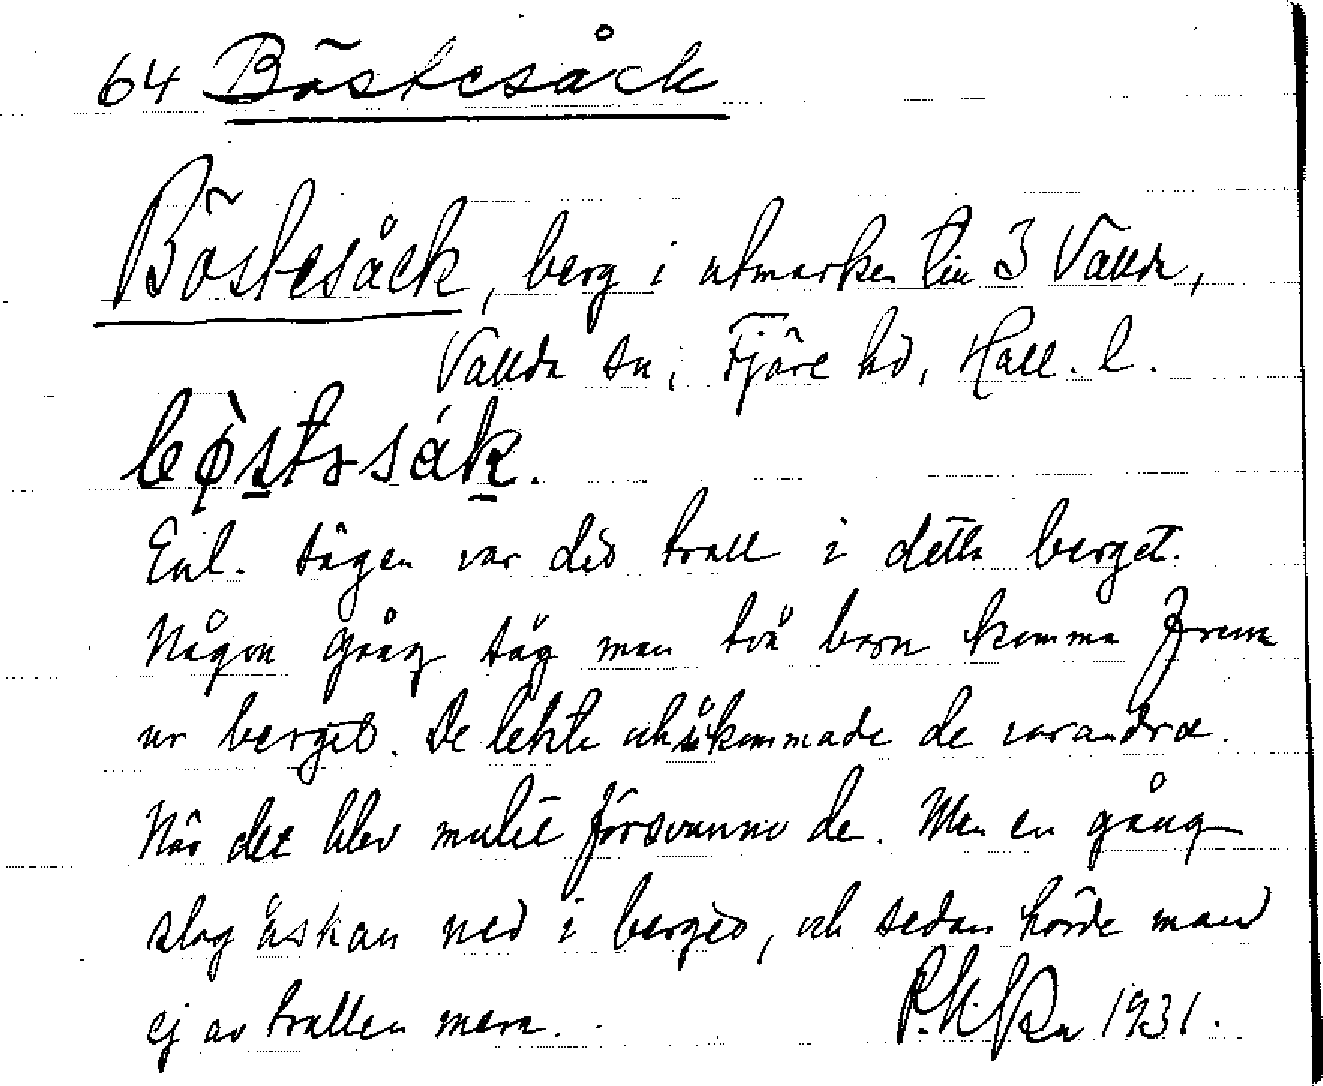 64 Böstesåck
Böstesåck, berg i utmarken till 3 Vallda,
Vallda sn, Fjäre hd, Hall. l.
Enl. sägen var det troll i detta berget.
Någon gång såg man två barn komma fram
ur berget. De lekte och kammade de varandra.
När det blev mulet försvunno de. Men en gång
slog åskan ned i berget, och sedan hörde man
ej av trollen mera. 1931.